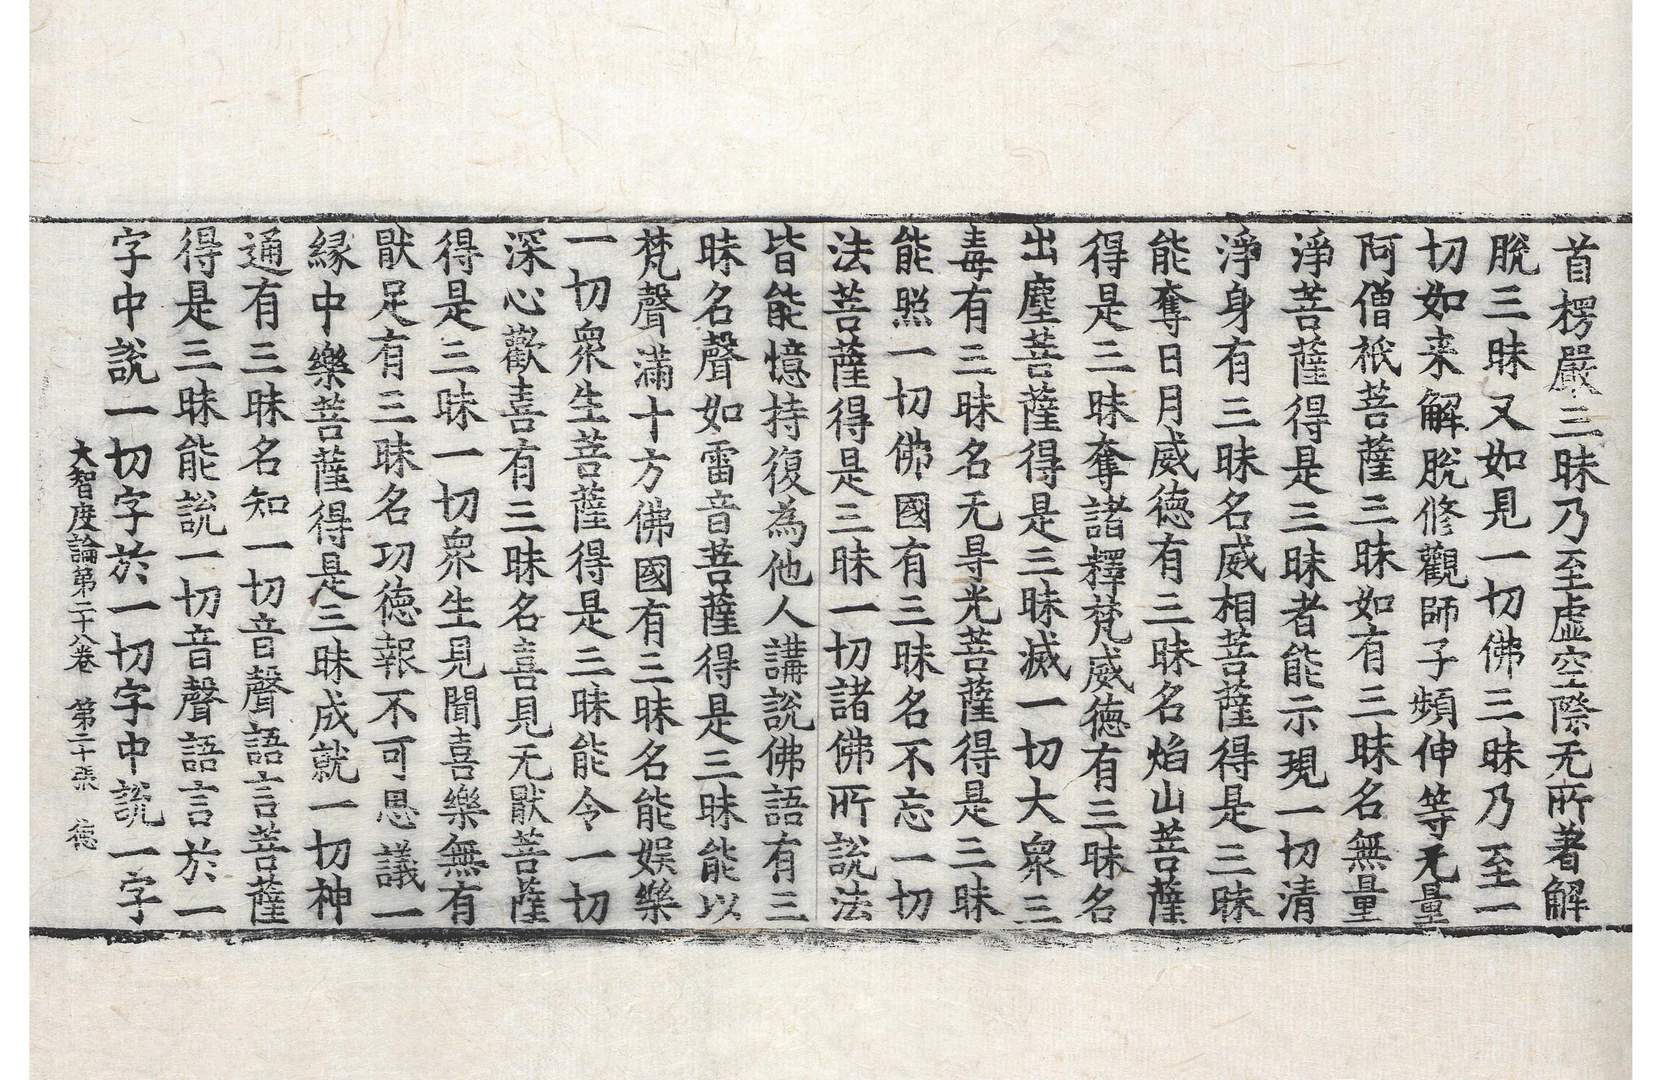 首楞嚴三昧乃至虛空際无所著解
脫三昧又如見一切佛三昧乃至一
切如来解脫修觀師子頻伸等无量
阿僧祇菩薩三昧如有三昧名無量
淨菩薩得是三昧者能示現一切清
淨身有三昧名威相菩薩得是三昧
能奪日月威德有三昧名焰山菩薩
得是三昧奪諸釋梵威德有三昧名
出塵菩薩得是三昧滅一切大衆三
毒有三昧名无㝵光菩薩得是三昧
能照一切佛國有三昧名不忘一切
法菩薩得是三昧一切諸佛所說法
皆能憶持復為他人講說佛語有三
昧名聲如雷音菩薩得是三昧能以
梵聲滿十方佛國有三昧名能娛樂
一切衆生菩薩得是三昧能令一切
深心歡喜有三昧名喜見无猒菩薩
得是三昧一切衆生見聞喜樂無有
猒足有三昧名功德報不可思議一
縁中樂菩薩得是三昧成就一切神
通有三昧名知一切音聲語言菩薩
得是三昧能說一切音聲語言於一
字中說一切字於一切字中說一字
大智度論第二十八卷　第二十張　德